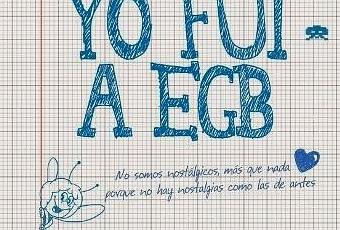 YO FUI
A EGB
No somos nostálgicos, más que nada
porque no hay nostalgias como las de antes